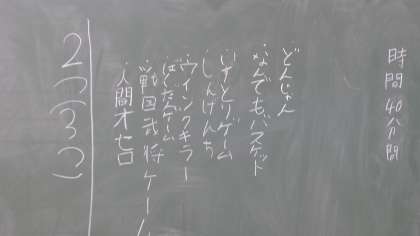 時間40分間
どんじゃん
・なんでもバスケット
・いすとりゲーム
・しんげんち
・ウインクキラー
・はとだゲーム
・戦国武将ゲーム
・人間オセロ
2つ(3つ)